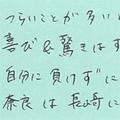 つらいことが多いと
喜び&驚きはす
自分に負けずに
奈良は長崎に